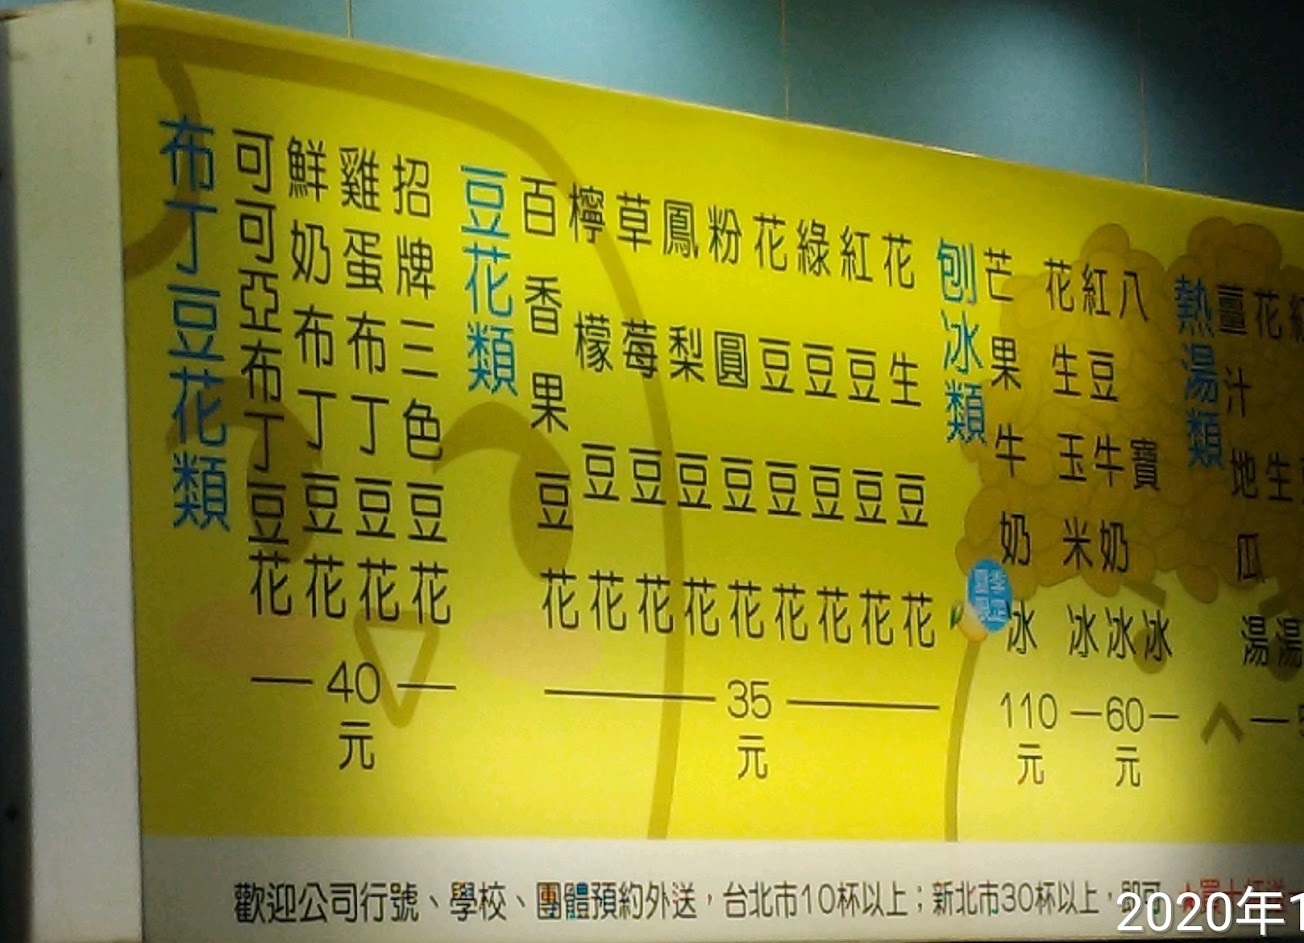 布丁豆花類
可可亞布丁豆花
鮮奶布丁豆花
雞蛋布丁豆花
招牌三色豆花
40元
豆花類
百香果豆花
檸檬豆花
草莓豆花
鳳梨豆花
粉圓豆花
花豆豆花
綠豆豆花
紅豆豆花
花生豆花
35元
刨冰類
芒果牛奶冰
110元
花生玉米冰
紅豆牛奶冰
八寶冰
60元
熱湯類
薑汁地瓜湯
花生湯
歡迎公司行號、學校、團體預約外送，台北市10杯以上；新北市30杯以上，即可
2020年1